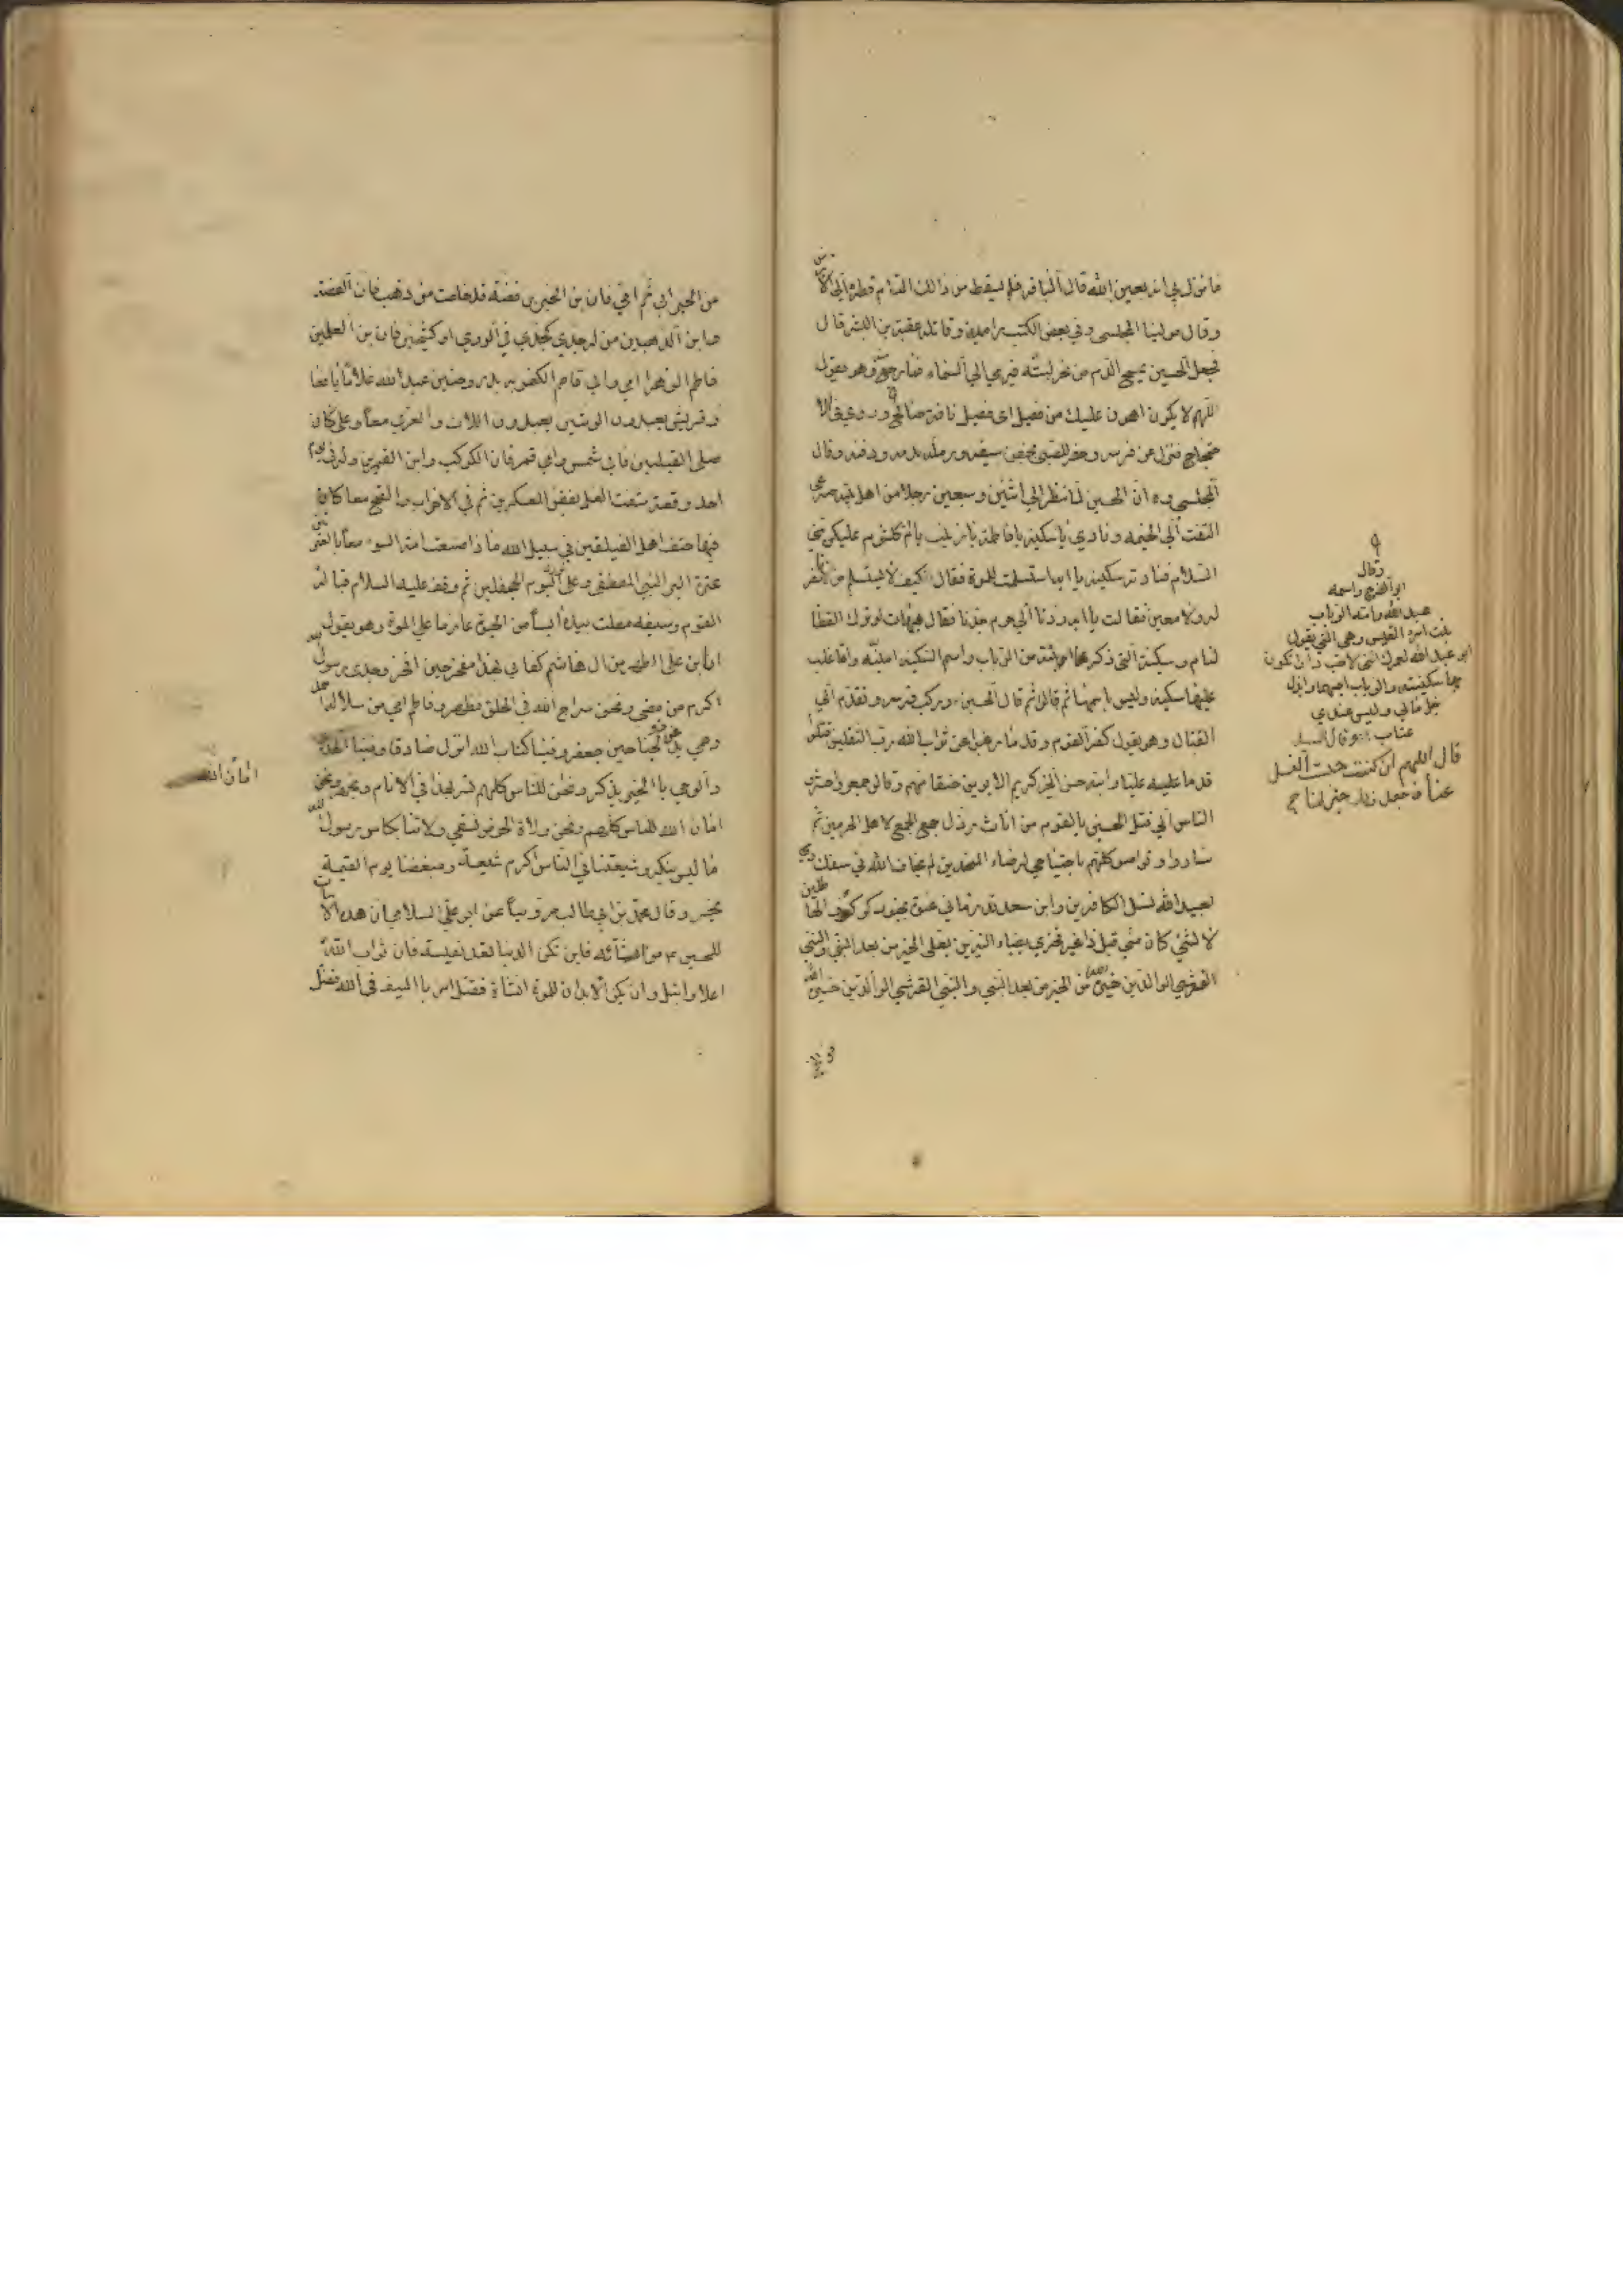 ما نزل بي انه بعين الله قال الباقر فلم يسقط من ذالك الدم قطرة الي الارض
وقال مولينا المجلسي وفي بعض الكتب وقاتله عقبة بن البشر قال
فجعل الحسين يمسح الدم من نحر لبته فيرمي الي السماء فما رجع وهو يقول
اللهم لا يكون اهون عليك من فصيل اي فصيل ناقة صالح وروي في الا
حتجاج فنزل عن فرسه وحفر للصبي بجفن سيفه ورمله بدمه ودفنه وقال
المجلسي ره ان الحسين لما نظر الي اثنين وسبعين رجلا من اهل بيته صرعي
التفت الي الخيمه ونادي يا سكينة يا فاطمة يا زينب يا ام كلثوم عليكن مني
السلام فنادته سكينه يا ابه استسلمت للموة فقال كيف لا يستسلم من لا ناصر
له ولا معين فقالت يا ابه ردنا الي حرم جدنا فقال هيهات لو ترك القطا
لنام وسكينة التي ذكرها ابنته من الرباب واسم السكينه امينه وانما غلب
عليها سكينه وليس باسمها ثم قالوا ثم قال الحسين وركب فرسه وتقدم الي
القتال وهو يقول كفر القوم وقدما رغبوا عن ثواب الله رب الثقلين قتلوا
قدما عليه عليا وابنه حسن الخير كريم الابوين حنقا منهم وقالوا جمعوا احشر
الناس الي قتل الحسين يا لقوم من اناث رذل جمع الجمع لاهل الحرمين ثم
ساروا وتواصوا كلهم باجتياحي لرضاء الملحدين لم يخافوا الله في سفك دمي
لعبيد الله نسل الكافرين وابن سعد قد رماني عنوة بجنود كوكوف الها
طلين
لا لشئ كان مني قبل ذا غير فخري بضياء النيرين بعلي الخير من بعد النبي والنبي
القرشي الوالدين خيرة الله من الخير من بعد النبي والنبي القرشي الوالدين خيرة الله
وقال
ابو الفرج واسمه
عبد الله وامه الرباب
بنت امرء القيس وهي التي يقول
ابو عبد الله لعمرك انني لاحب دارا تكون
بها سكينته والرباب احبهما وابذل
جل مالي وليس عندي
عتاب وقال السيد
قال اللهم ان كنت حبست النصر
عنا فاجعل
من الخير ابي ثم امي فان بن الخيرين فضة قد خلصت من ذهب فان الفضة
وابن الذهبين من له جدي كجدي في الوري او كشيخي فان بن العلمين
فاطم الزهرا امي وابي قاصم الكفر ببدر وحنين عبد الله غلاما يافعا
وقريش يعبدون الوثنين يعبدون اللات والعزي معا وعلي كان
صلي القبلتين فابي شمس وامي قمر فان الكوكب وابن القمرين وله في يوم
احد وقعة شفت الغل بفض العسكرين ثم في الاحزاب والفتح معا كان
فيها حتف اهل الفيلقين في سبيل الله ماذا صنعت امة السوء معا بالعترتين
عترة البر النبي المصطفي وعلي الورد يوم الجحفلين ثم وقف عليه السلام قبالة
القوم وسيفه مصلت بيده آيسا من الحيوة عازما علي الموة وهو يقول
انا بن علي الطهر من ال هاشم كفاني بهذا مفخر حين افخر وجدي رسول الله
اكرم من مضي ونحن سراج الله في الخلق نظهر وفاطم امي من سلالة احمد
وعمي يدعي ذو الجناحين جعفر وفينا كتاب الله انزل صادقا وفينا الهدي
والوحي بالخير يذكر ونحن للناس كلهم نسر بهذا في الانام ونجهر ونحن
امان الله للناس كلهم ونحن ولاة الحوض نسقي ولاتنا بكاس رسول الله
ما ليس ينكر وشيعتنا في الناس اكرم شيعة ومبغضنا يوم القيمة
يخسر وقال محمد بن ابي طالب مرويا عن ابو علي السلامي ان هذه الابيات
للحسين م من انشائه فاين تكن الدنيا تعد نفيسة فان ثواب الله
اعلا وانبل وان يكن الابدان للموة انشأة فقتل امرء بالسيف في الله افضل
امان الله